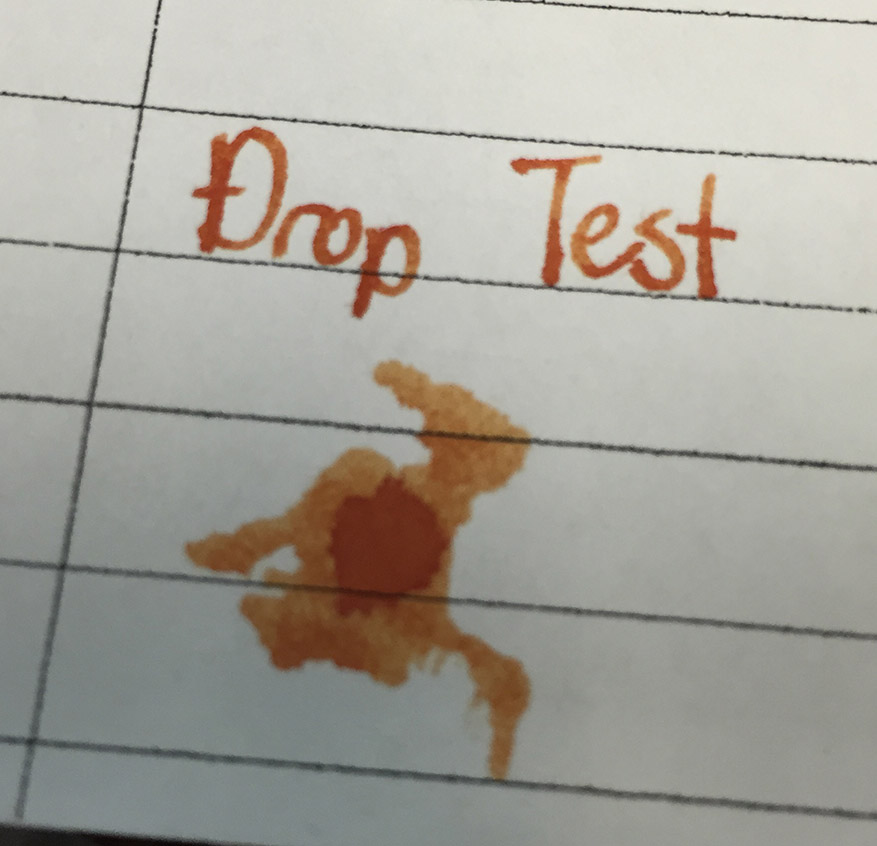 Đrop Test